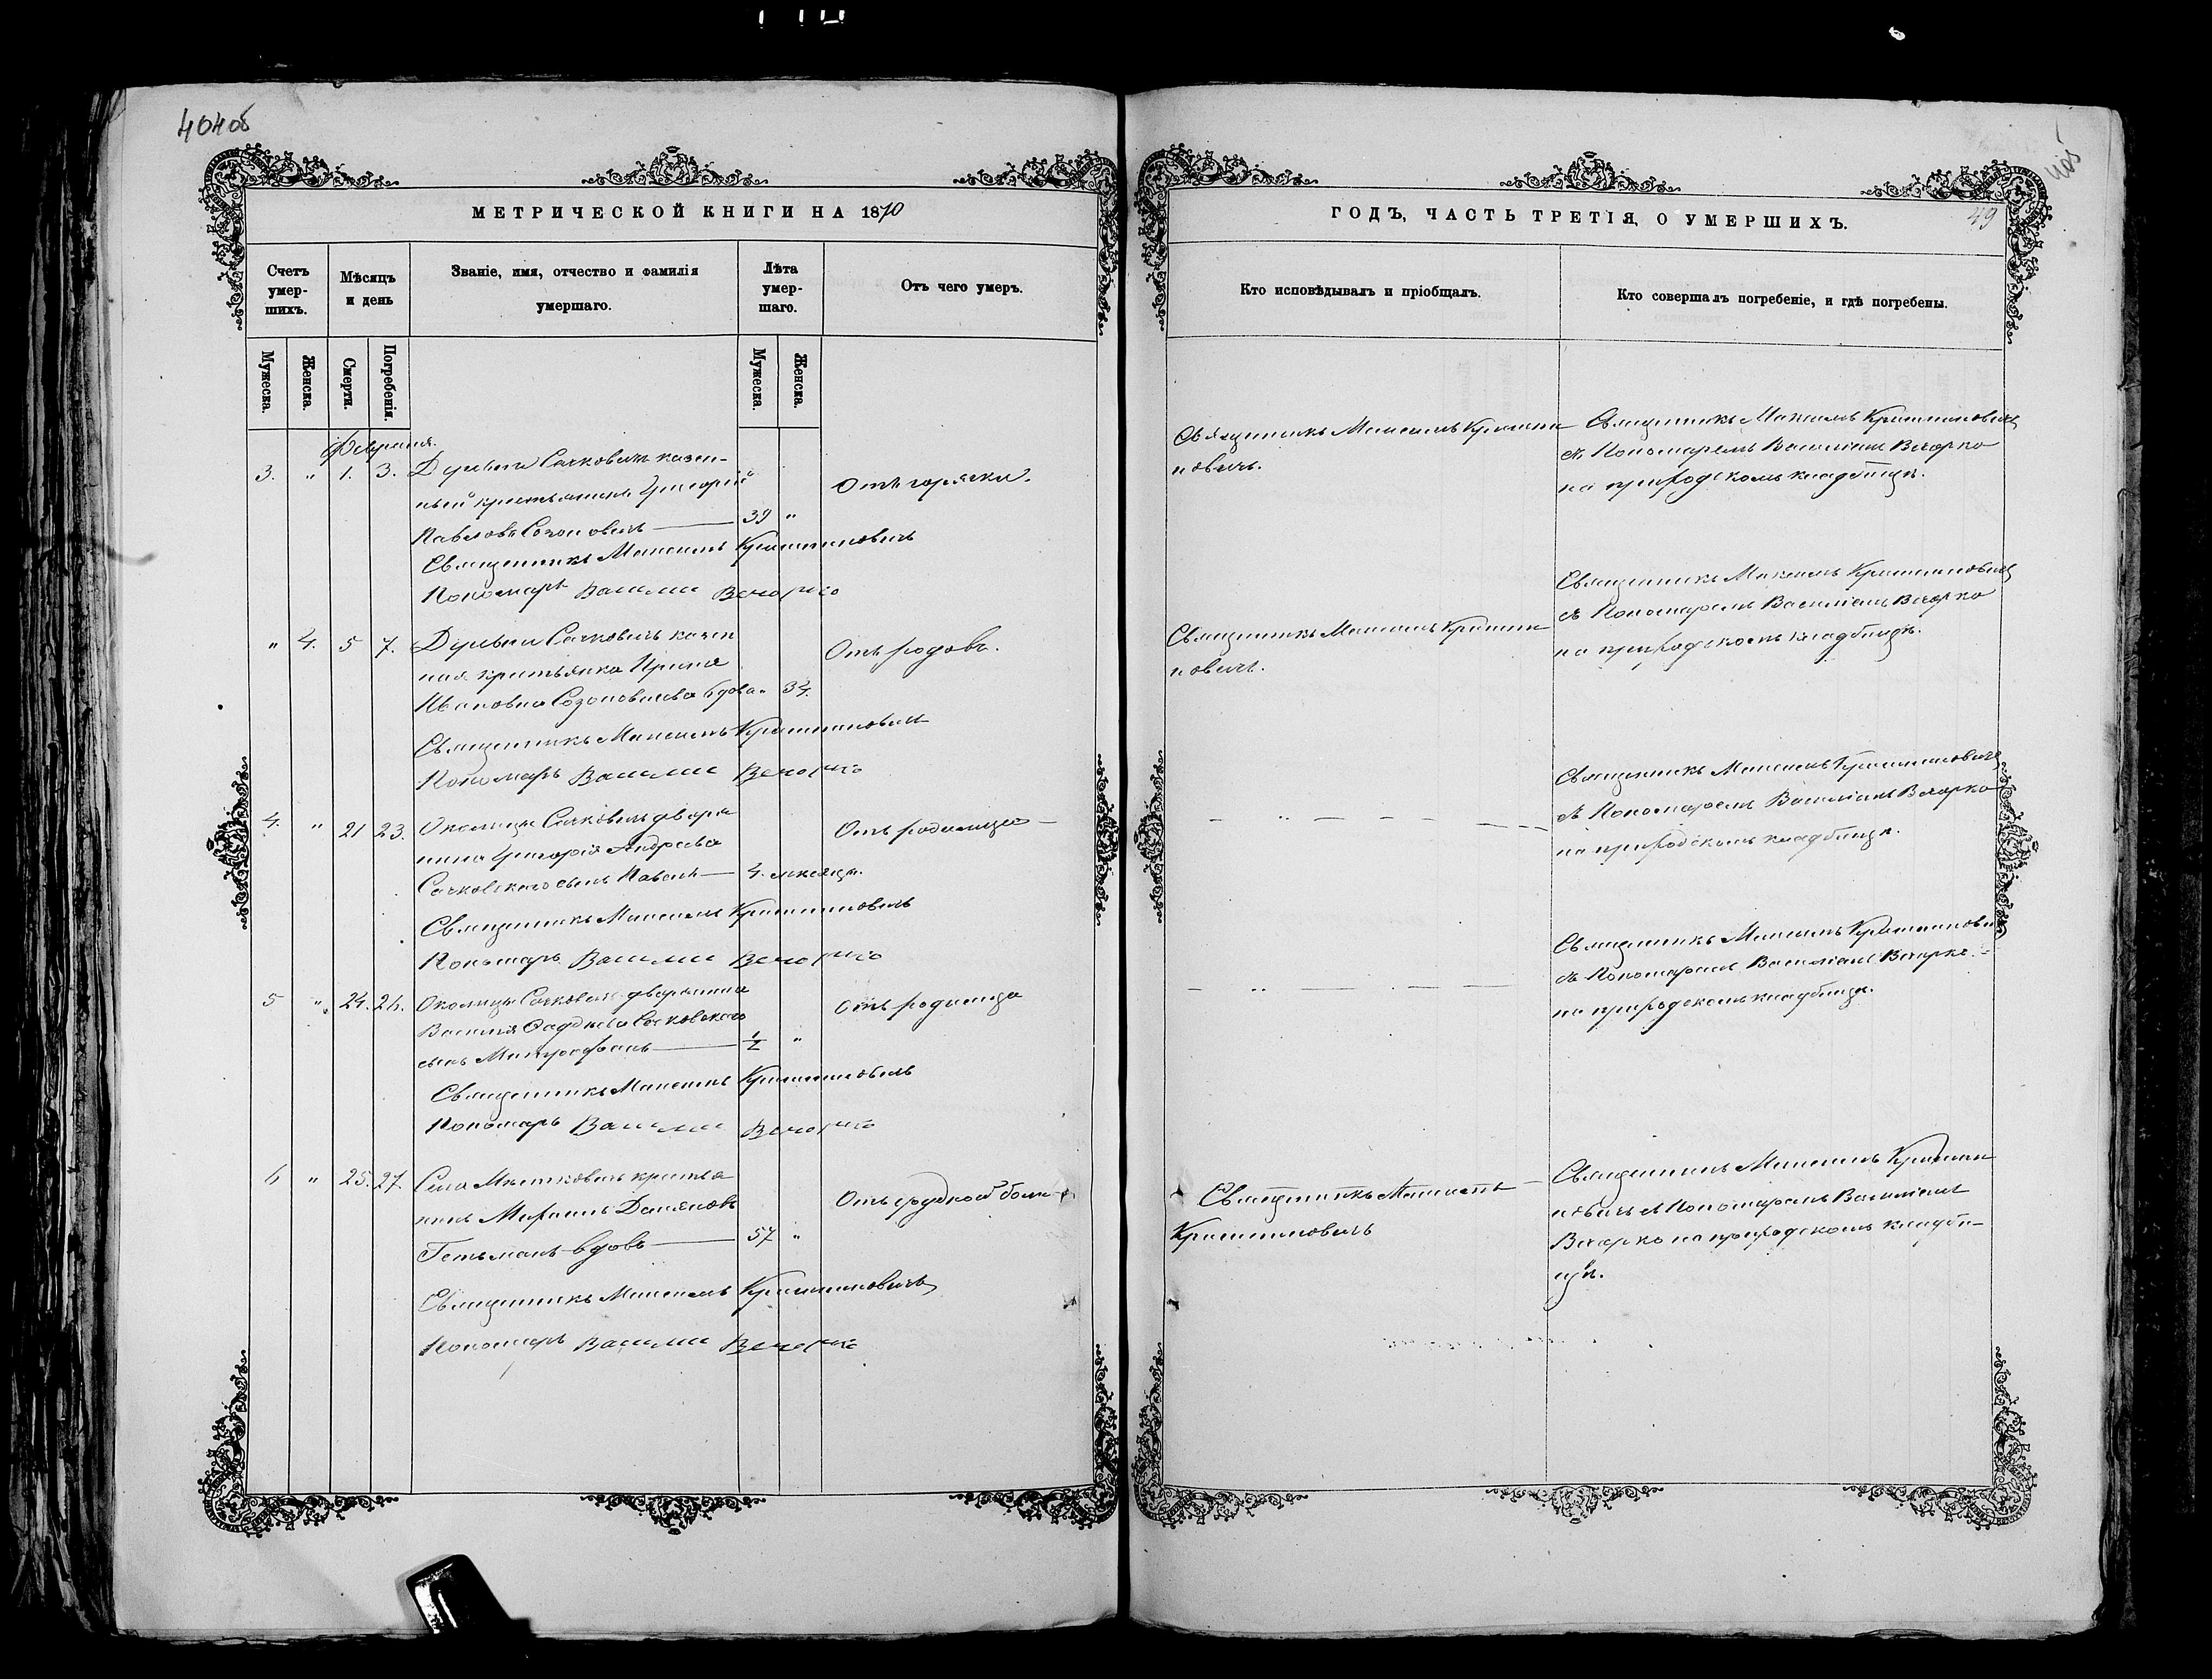 404об
МЕТРИЧЕСКОЙ КНИГИ НА 1870
Счетъ умер-шихъ.
Мѣсяцъ и день
Званіе, имя, отчество и фамилія умершаго.
Лѣта умер-шаго.
Отъ чего умеръ.
Мужеска.
Женска.
Смерти.
Погребенія.
Мужеска.
Женска.
Февраля.
3. " 1. 3. Деревни Сачковичъ казен-
ный крестьянинъ Григорій
Отъ горячки.
Павловъ Созоновичъ — 39 "
Священникъ Максимъ Крашановичъ
Пономарь Василій Вечорко
" 4. 5 7. Деревни Сачковичъ казен
Отъ родовъ.
ная крестьянка Ирина
Ивановна Созоновичева вдова " 34.
Священникъ Максимъ Крашановичъ
Пономарь Василій Вечорко
4. " 21 23. Околицы Сачковичъ дворя
Отъ родимца
нина Григорія Андреева
Сачковскаго сынъ Павелъ — 4. мѣсяца.
Священникъ Максимъ Крашановичъ
Пономарь Василій Вечорко
5 " 24. 26. Околицы Сачковичъ дворянина
Отъ родимца
Василія Фаддѣева Сачковскаго
сынъ Митрофанъ — 1/2 "
Священникъ Максимъ Крашановичъ
Пономарь Василій Вечорко
6 " 25. 27. Села крестья
нинъ Демяновъ
Отъ грудной болѣ
Гетьманъ вдовъ — 57 "
Священникъ Максимъ Крашановичъ
Пономарь Василій Вечорко
49
ГОДЪ, ЧАСТЬ ТРЕТІЯ, О УМЕРШИХЪ.
Кто исповѣдывалъ и пріобщалъ.
Кто совершалъ погребеніе, и гдѣ погребены.
Священникъ Максимъ Крашановичъ.
Священникъ Максимъ Крашановичъ
съ Пономаремъ Василіемъ Вечорко
на приходскомъ кладбищѣ.
Священникъ Максимъ Крашановичъ.
Священникъ Максимъ Крашановичъ
съ Пономаремъ Василіемъ Вечорко
на приходскомъ кладбищѣ.
— " — — — —
Священникъ Максимъ Крашановичъ
съ Пономаремъ Василіемъ Вечорко
на приходскомъ кладбищѣ.
— " — — —
Священникъ Максимъ Крашанович
съ Пономаремъ Василіемъ Вечорко
на приходскомъ кладбищѣ.
Священникъ Максимъ
Крашановичъ
Священникъ Максимъ Крашан
овичъ съ Пономаремъ Василіемъ
Вечорко на приходскомъ кладби-
щѣ.